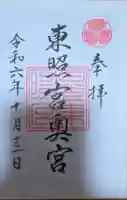 奉拝
東照宮奥宮
令和六年十月三一日